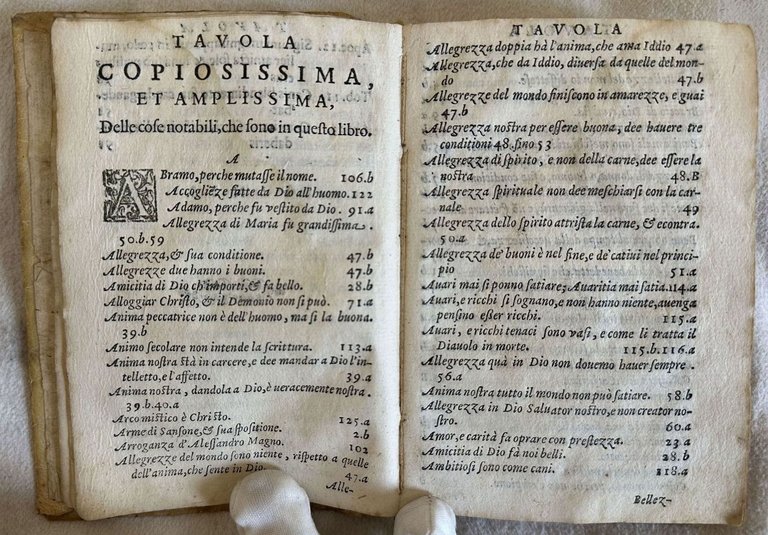 TAVOLA
COPIOSISSIMA,
ET AMPLISSIMA,
Delle cose notabili, che sono in questo libro.
A
ABramo, perche mutasse il nome. 106.b
Accoglieze fatte da Dio all'huomo. 122
Adamo, perche fu vestito da Dio. 91.a
Allegrezza di Maria fu grandissima.
50.b.59
Allegrezza, & sua conditione. 47.b
Allegrezze due hanno i buoni. 47.b
Amicitia di Dio ch'importi, & fa bello. 28.b
Alloggiar Christo, & il Demonio non si può. 71.a
Anima peccatrice non è dell'huomo, ma sì la buona.
39.b
Animo secolare non intende la scrittura. 113.a
Anima nostra stà in carcere, e dee mandar a Dio l'in-
telletto, e l'affetto. 39.a
Anima nostra, dandola a Dio, è veracemente nostra.
39.b.40.a
Arco mistico è Christo. 125.a
Arme di Sansone, & sua spositione. 2.b
Arroganza d'Alessandro Magno. 102
Allegrezze del mondo sono niente, rispetto a quelle
dell'anima, che sente in Dio. 47.a
Alle-
TAVOLA
Allegrezza doppia hà l'anima, che ama Iddio 47.a
Allegrezza, che da Iddio, diversa da quelle del mon-
do 47.b
Allegrezze del mondo finiscono in amarezze, e guai
47.b
Allegrezza nostra per essere buona, dee hauere tre
conditioni 48. fino 53
Allegrezza di spirito, e non della carne, dee essere la
nostra 48.B
Allegrezza spirituale non dee meschiarsi con la car-
nale 49
Allegrezza dello spirito attrista la carne, & econtra.
50.a
Allegrezza de' buoni è nel fine, e de' catiui nel princi-
pio 51.a
Auari mai si ponno satiare; Auaritia mai satia. 114.a
Auari, e ricchi si sognano, e non hanno niente, auenga
pensino esser ricchi. 115.a
Auari, e ricchi tenaci sono vasi, e come li tratta il
Diauolo in morte. 115.b.116.a
Allegrezza quà in Dio non douemo hauer sempre.
56.a
Anima nostra tutto il mondo non può satiare. 58.b
Allegrezza in Dio Saluator nostro, e non creator no-
stro. 60.a
Amor, e carità fa oprare con prestezza. 23.a
Amicitia di Dio fà noi belli. 28.b
Ambitiosi sono come cani. 118.a
Bellez-